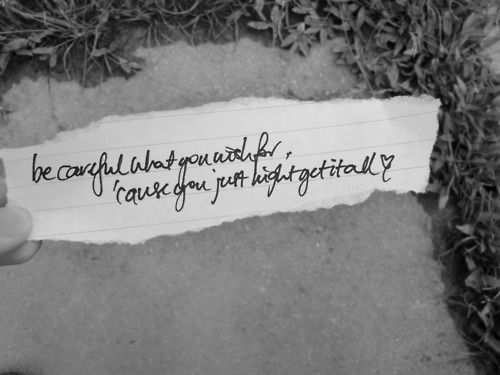 be careful what you wish for,
'cause you just might get it all ♡